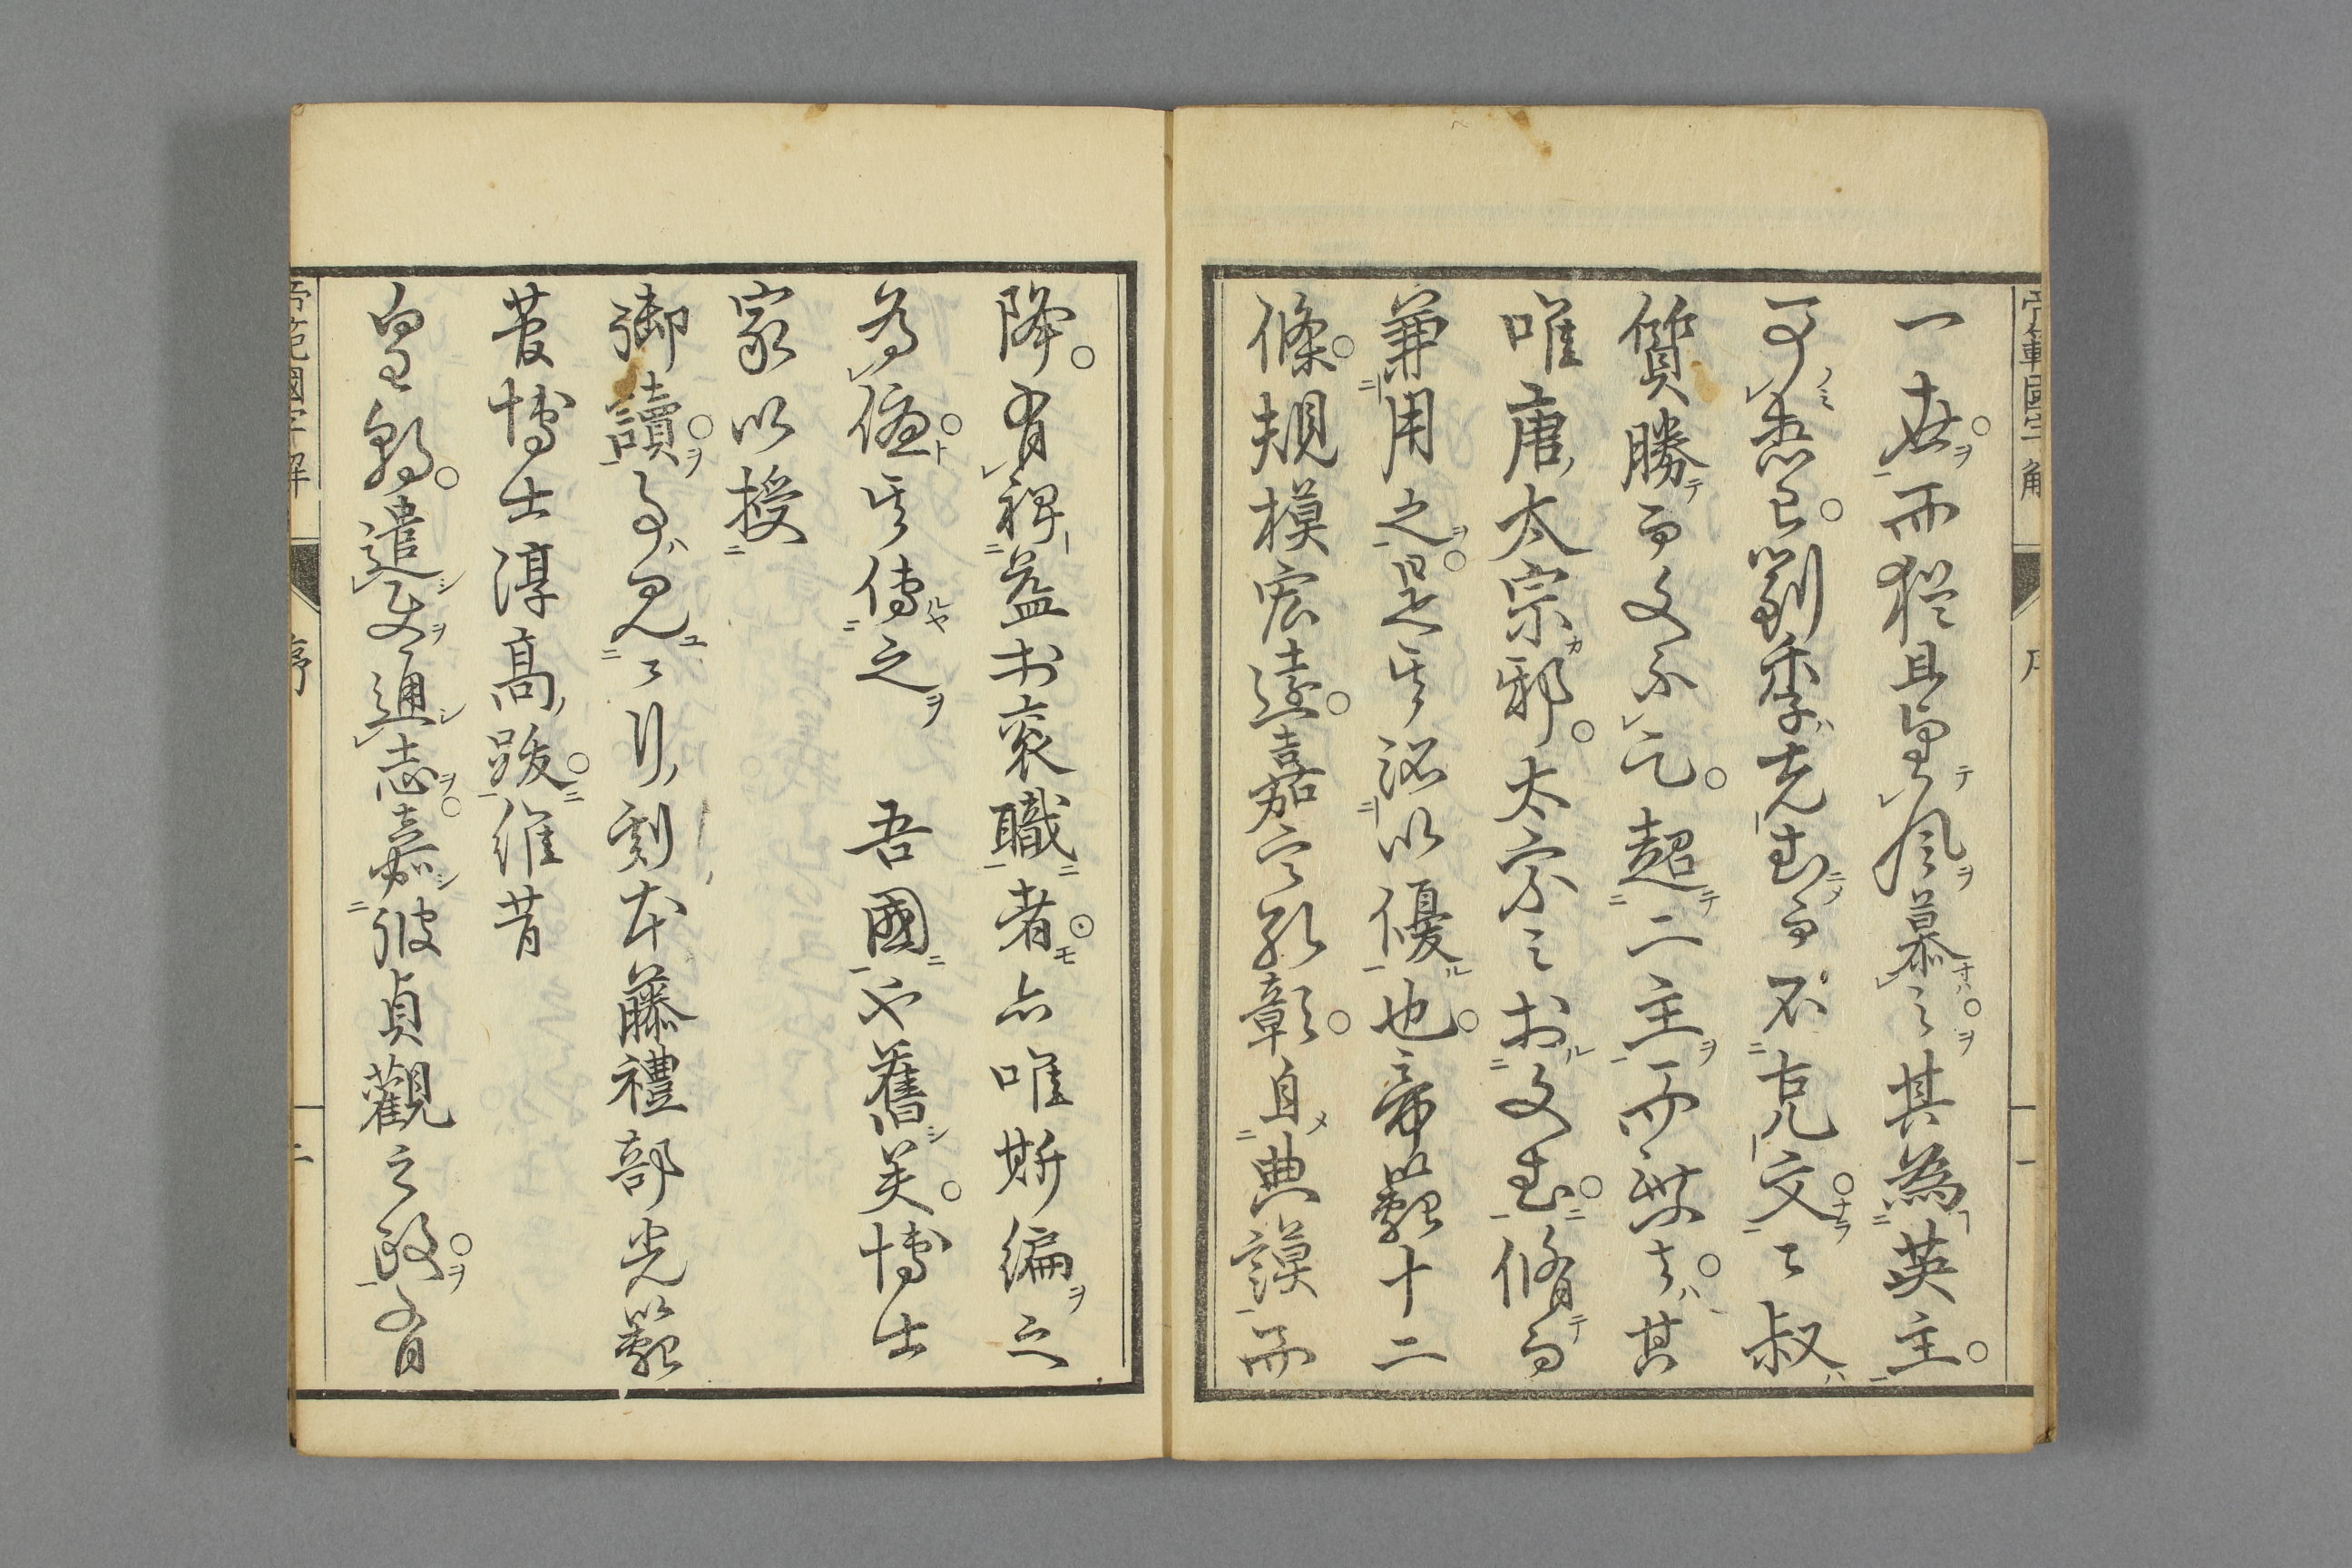 一世而猶且望風慕之其為英主
可悉已劉季克武而不克文文叔
質勝而文不之超二主而無之其
唯唐太宗邪太宗之於文武脩而
兼用之是其所以優也帝範十二
條規模宏遠嘉言孔彰自典謨而
降有裨益於袞職者亦唯斯編之
為俑其傳之 吾國也舊矣博士
家以授
御讀事見之引刻本藤禮部光範
菅博士淳高跋維昔
皇朝遣使通志嘉彼貞觀之政有
帝範國字解 序 一
帝範國字解 序 二